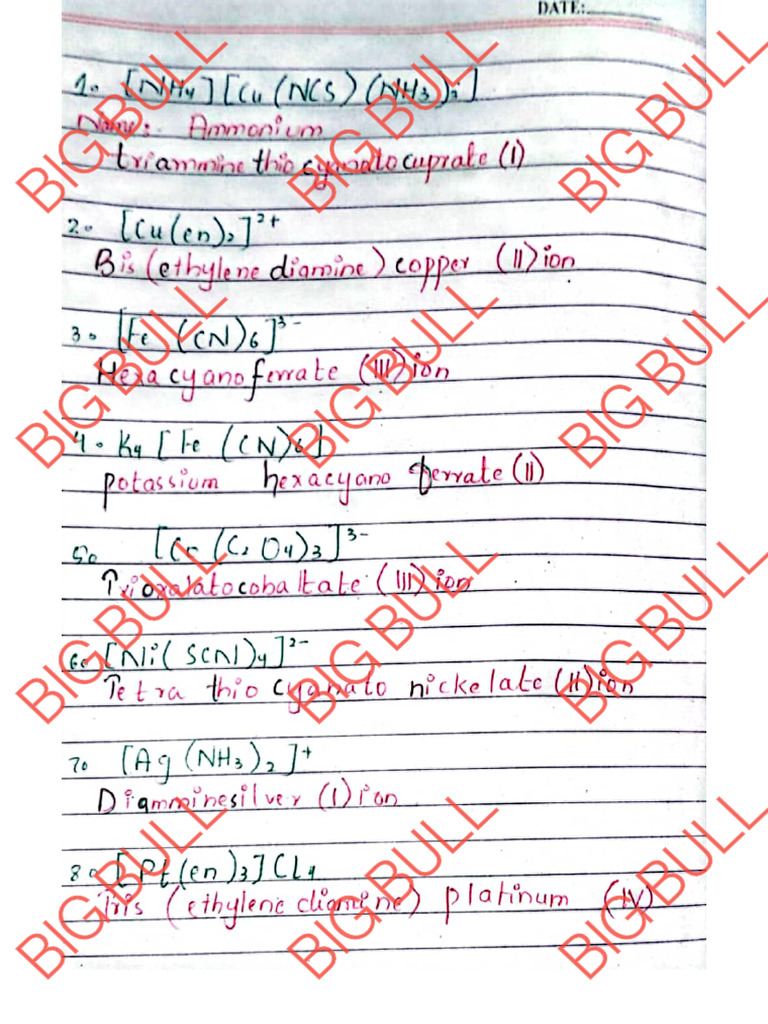 DATE:
1. [NH4] [Cu (NCS) (NH3)3]
Name: Ammonium
triammine thiocyanatocuprate (I)
2. [Cu(en)2]2+
Bis (ethylene diamine) copper (II) ion
3. [Fe (CN)6]3-
Hexacyanoferrate (III) ion
4. K4 [Fe (CN)6]
potassium hexacyano ferrate (II)
5. [Co (C2O4)3]3-
Trioxalatocobaltate (III) ion
6. [Ni (SCN)4]2-
Tetra thio cyanato nickelate (II) ion
7. [Ag (NH3)2]+
Diamminesilver (I) ion
8. [Pt(en)3]Cl4
Tris (ethylene diamine) platinum (IV)
BIG BULL BIG BULL BIG BULL
BIG BULL BIG BULL BIG BULL
BIG BULL BIG BULL BIG BULL
BIG BULL BIG BULL BIG BULL